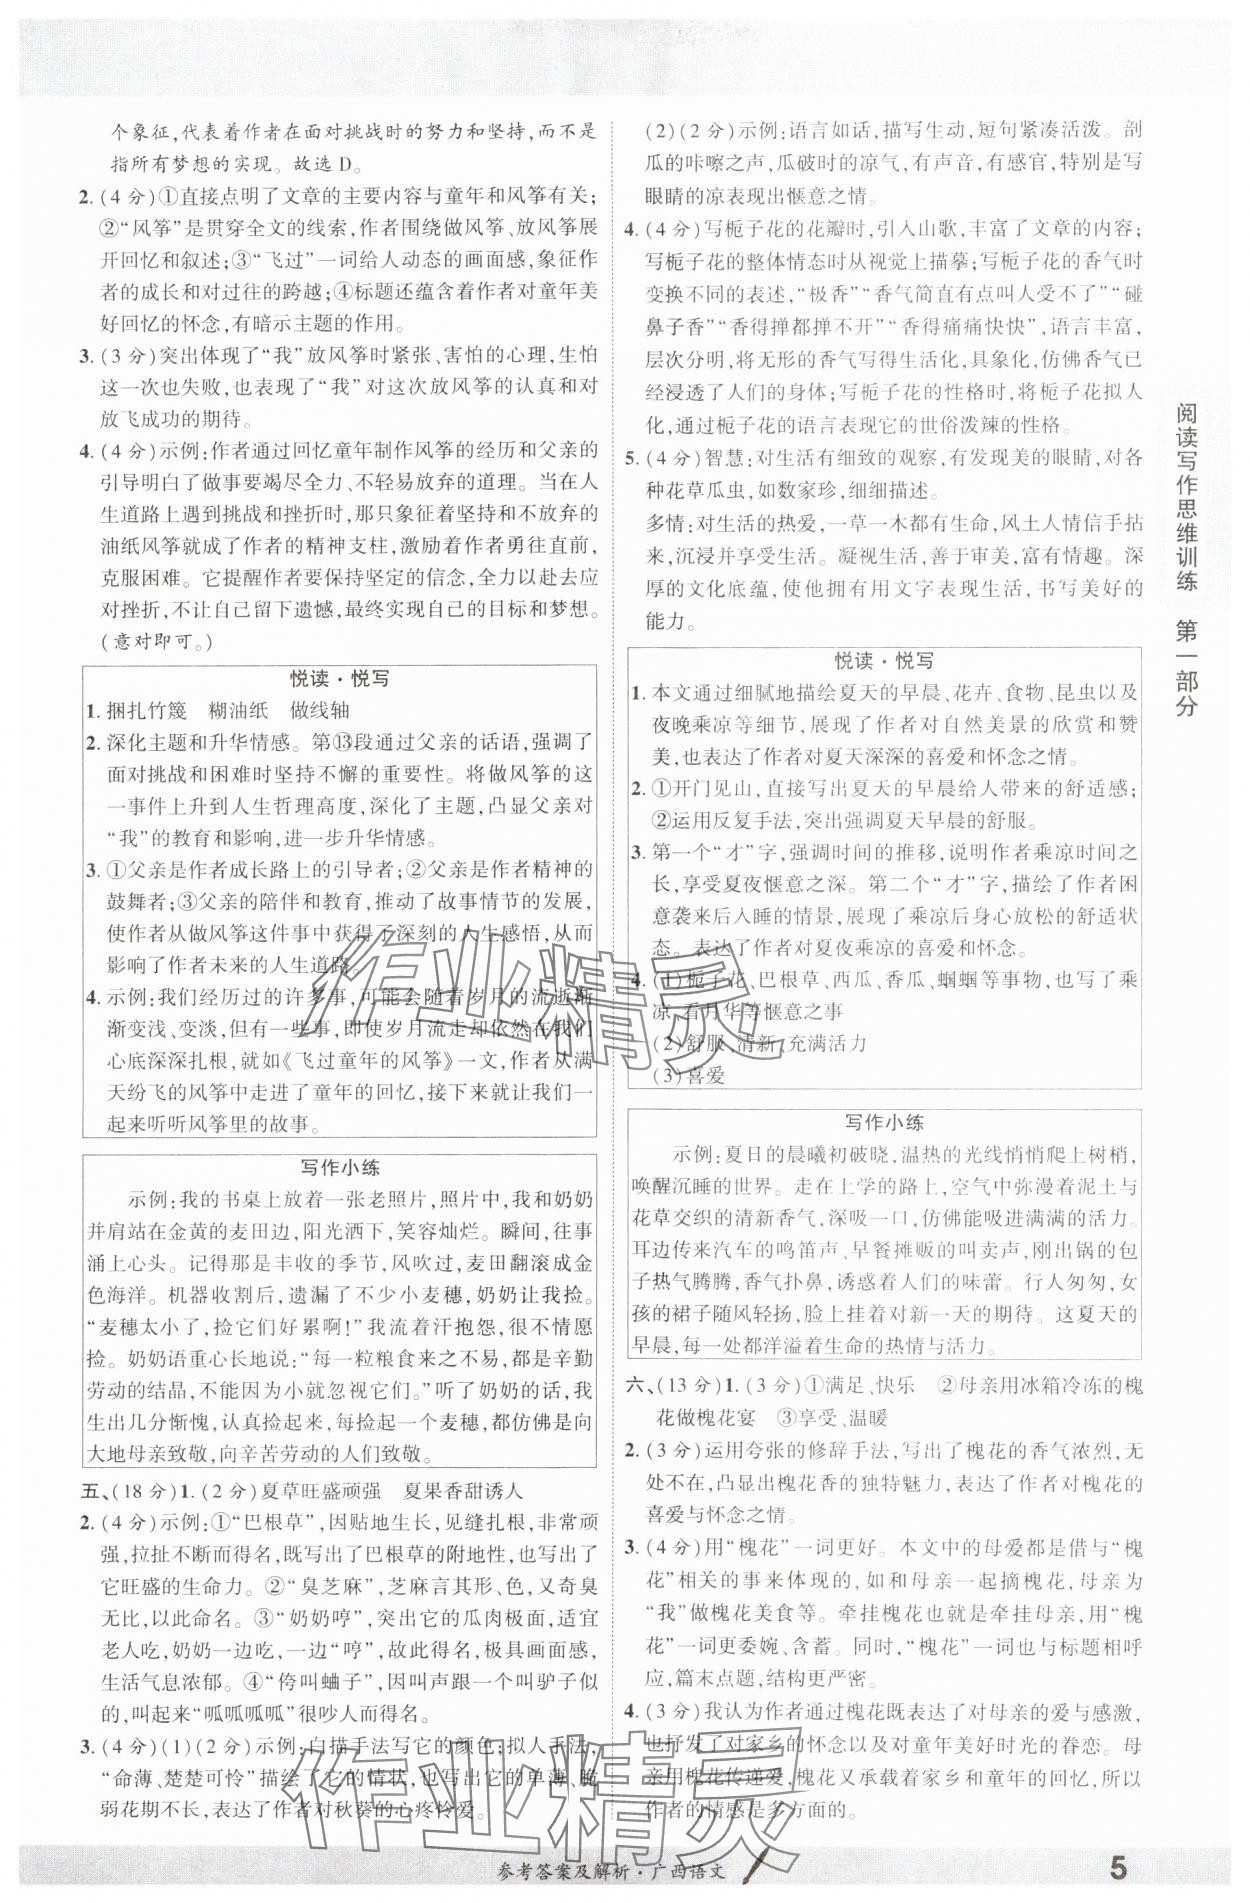 个象征,代表着作者在面对挑战时的努力和坚持,而不是
指所有梦想的实现。故选 D。
2. (4 分)①直接点明了文章的主要内容与童年和风筝有关;
②“风筝”是贯穿全文的线索,作者围绕做风筝、放风筝展
开回忆和叙述;③“飞过”一词给人动态的画面感,象征作
者的成长和对过往的跨越;④标题还蕴含着作者对童年美
好回忆的怀念,有暗示主题的作用。
3. (3 分)突出体现了“我”放风筝时紧张、害怕的心理,生怕
这一次也失败,也表现了“我”对这次放风筝的认真和对
放飞成功的期待。
4. (4 分)示例:作者通过回忆童年制作风筝的经历和父亲的
引导明白了做事要竭尽全力、不轻易放弃的道理。当在人
生道路上遇到挑战和挫折时,那只象征着坚持和不放弃的
油纸风筝就成了作者的精神支柱,激励着作者勇往直前,
克服困难。它提醒作者要保持坚定的信念,全力以赴去应
对挫折,不让自己留下遗憾,最终实现自己的目标和梦想。
(意对即可。)
悦读·悦写
1. 捆扎竹篾 糊油纸 做线轴
2. 深化主题和升华情感。第⑬段通过父亲的话语,强调了
面对挑战和困难时坚持不懈的重要性。将做风筝的这
一事件上升到人生哲理高度,深化了主题,凸显父亲对
“我”的教育和影响,进一步升华情感。
3. ①父亲是作者成长路上的引导者;②父亲是作者精神的
鼓舞者;③父亲的陪伴和教育,推动了故事情节的发展,
使作者从做风筝这件事中获得了深刻的人生感悟,从而
影响了作者未来的人生道路。
4. 示例:我们经历过的许多事,可能会随着岁月的流逝渐
渐变浅、变淡,但有一些事,即使岁月流走却依然在我们
心底深深扎根,就如《飞过童年的风筝》一文,作者从满
天纷飞的风筝中走进了童年的回忆,接下来就让我们一
起来听听风筝里的故事。
写作小练
示例:我的书桌上放着一张老照片,照片中,我和奶奶
并肩站在金黄的麦田边,阳光洒下,笑容灿烂。瞬间,往事
涌上心头。记得那是丰收的季节,风吹过,麦田翻滚成金
色海洋。机器收割后,遗漏了不少小麦穗,奶奶让我捡。
“麦穗太小了,捡它们好累啊!”我流着汗抱怨,很不情愿
捡。奶奶语重心长地说:“每一粒粮食来之不易,都是辛勤
劳动的结晶,不能因为小就忽视它们。”听了奶奶的话,我
生出几分惭愧,认真捡起来,每捡起一个麦穗,都仿佛是向
大地母亲致敬,向辛苦劳动的人们致敬。
五、(18 分)1. (2 分)夏草旺盛顽强 夏果香甜诱人
2. (4 分)示例:①“巴根草”,因贴地生长,见缝扎根,非常顽
强,拉扯不断而得名,既写出了巴根草的附地性,也写出了
它旺盛的生命力。②“臭芝麻”,芝麻言其形、色,又奇臭
无比,以此命名。③“奶奶哼”,突出它的瓜肉极面,适宜
老人吃,奶奶一边吃,一边“哼”,故此得名,极具画面感,
生活气息浓郁。④“侉叫蛐子”,因叫声跟一个叫驴子似
的,叫起来“呱呱呱呱”很吵人而得名。
3. (4 分)(1)(2 分)示例:白描手法写它的颜色;拟人手法,
“命薄、楚楚可怜”描绘了它的情状,也写出了它的单薄、脆
弱花期不长,表达了作者对秋葵的心疼怜爱。
(2)(2 分)示例:语言如话,描写生动,短句紧凑活泼。剖
瓜的咔嚓之声,瓜破时的凉气,有声音,有感官,特别是写
眼睛的凉表现出惬意之情。
4. (4 分)写栀子花的花瓣时,引入山歌,丰富了文章的内容;
写栀子花的整体情态时从视觉上描摹;写栀子花的香气时
变换不同的表述,“极香”“香气简直有点叫人受不了”“碰
鼻子香”“香得掸都掸不开”“香得痛痛快快”,语言丰富,
层次分明,将无形的香气写得生活化,具象化,仿佛香气已
经浸透了人们的身体;写栀子花的性格时,将栀子花拟人
化,通过栀子花的语言表现了它的世俗泼辣的性格。
5. (4 分)智慧:对生活有细致的观察,有发现美的眼睛,对各
种花草瓜虫,如数家珍,细细描述。
多情:对生活的热爱,一草一木都有生命,风土人情信手拈
来,沉浸并享受生活。凝视生活,善于审美,富有情趣。深
厚的文化底蕴,使他拥有用文字表现生活,书写美好的
能力。
悦读·悦写
1. 本文通过细腻地描绘夏天的早晨、花卉、食物、昆虫以及
夜晚乘凉等细节,展现了作者对自然美景的欣赏和赞
美,也表达了作者对夏天深深的喜爱和怀念之情。
2. ①开门见山,直接写出夏天的早晨给人带来的舒适感;
②运用反复手法,突出强调夏天早晨的舒服。
3. 第一个“才”字,强调时间的推移,说明作者乘凉时间之
长,享受夏夜惬意之深。第二个“才”字,描绘了作者困
意袭来后入睡的情景,展现了乘凉后身心放松的舒适状
态。表达了作者对夏夜乘凉的喜爱和怀念。
4. (1)栀子花、巴根草、西瓜、香瓜、蝈蝈等事物,也写了乘
凉、看月华等惬意之事
(2)舒服、清新、充满活力
(3)喜爱
写作小练
示例:夏日的晨曦初破晓,温热的光线悄悄爬上树梢,
唤醒沉睡的世界。走在上学的路上,空气中弥漫着泥土与
花草交织的清新香气,深吸一口,仿佛能吸进满满的活力。
耳边传来汽车的鸣笛声、早餐摊贩的叫卖声,刚出锅的包
子热气腾腾,香气扑鼻,诱惑着人们的味蕾。行人匆匆,女
孩的裙子随风轻扬,脸上挂着对新一天的期待。这夏天的
早晨,每一处都洋溢着生命的热情与活力。
六、(13 分)1. (3 分)①满足、快乐 ②母亲用冰箱冷冻的槐
花做槐花宴 ③享受、温暖
2. (3 分)运用夸张的修辞手法,写出了槐花的香气浓烈,无
处不在,凸显出槐花香的独特魅力,表达了作者对槐花的
喜爱与怀念之情。
3. (4 分)用“槐花”一词更好。本文中的母爱都是借与“槐
花”相关的事来体现的,如和母亲一起摘槐花,母亲为
“我”做槐花美食等。牵挂槐花也就是牵挂母亲,用“槐
花”一词更委婉、含蓄。同时,“槐花”一词也与标题相呼
应,篇末点题,结构更严密。
4. (3 分)我认为作者通过槐花既表达了对母亲的爱与感激,
也抒发了对家乡的怀念以及对童年美好时光的眷恋。母
亲用槐花传递爱,槐花又承载着家乡和童年的回忆,所以
作者的情感是多方面的。
阅读写作思维训练 第一部分
作业精灵
作业精灵
参考答案及解析·广西语文
5